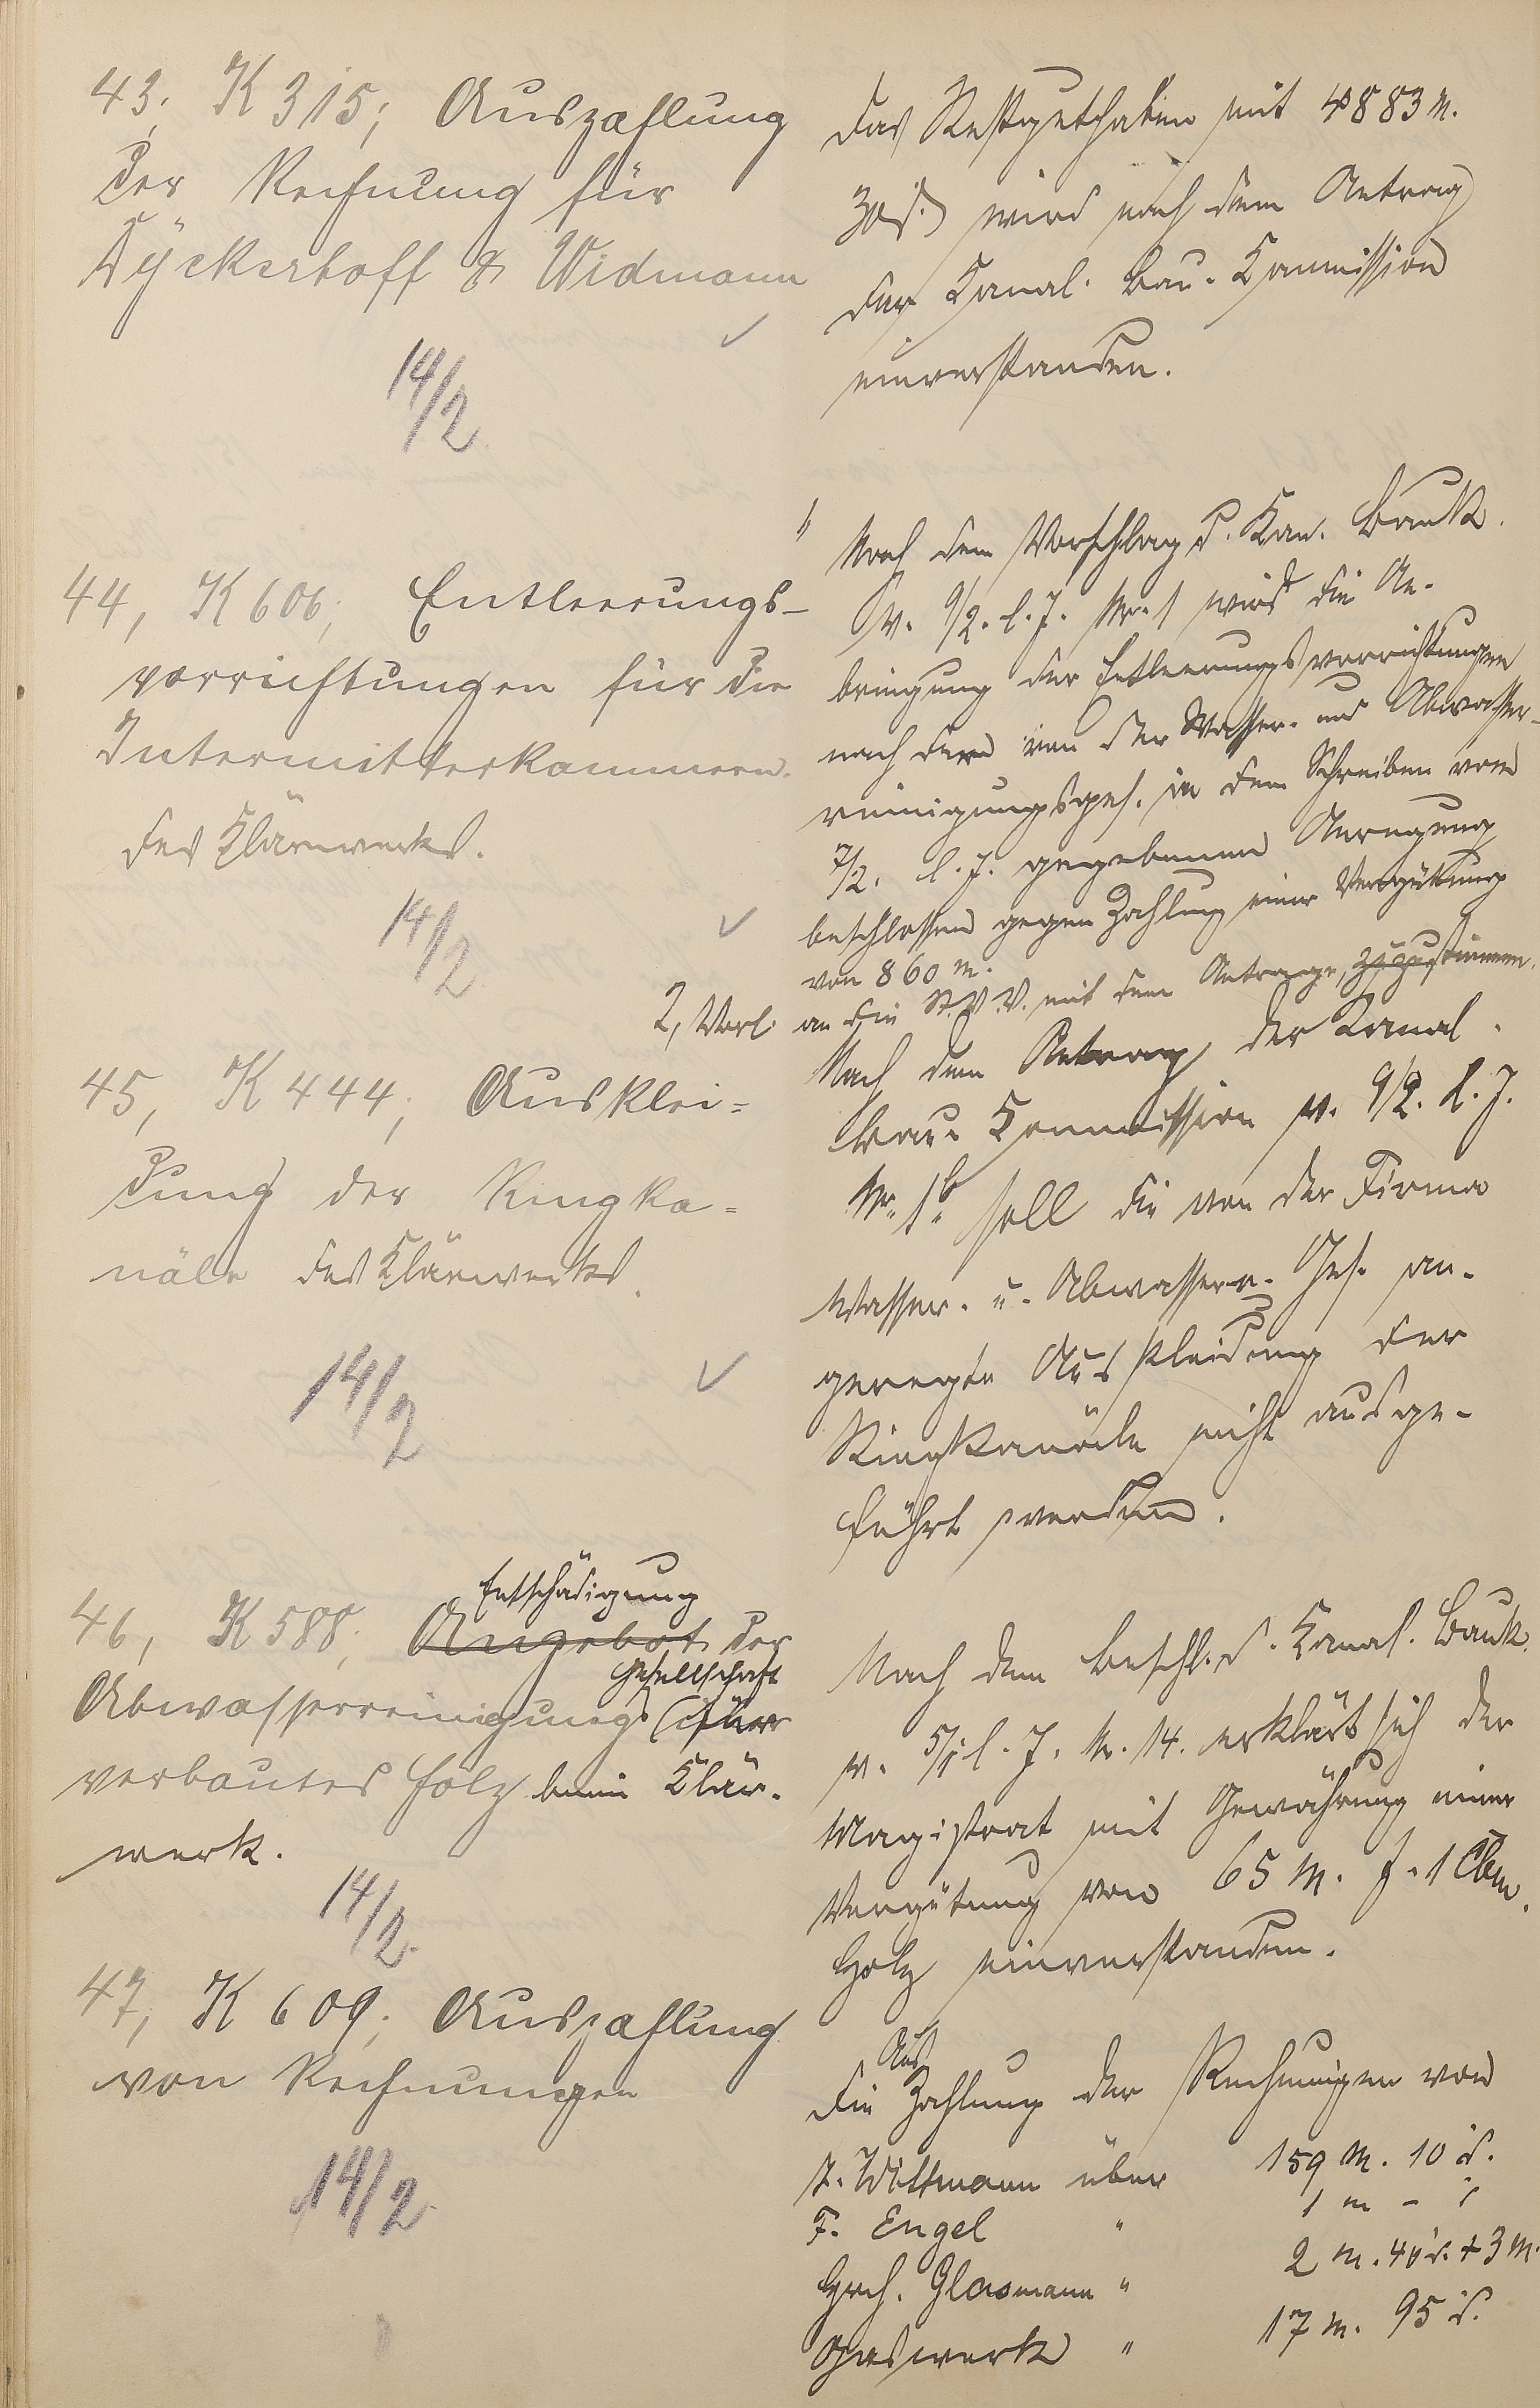 43, K 315; Auszahlung
der Rechnung für
Dyckerhoff & Widmann
14/2
Das Restguthaben mit 4883 M.
30 d. wird nach dem Antrag
der Kanal-Bau-Kommission
einverstanden.
44, K 606; Entleerungs-
vorrichtungen für die
Intermitterkammern
des Klärwerks.
14/2
Nach dem Vorschlag d. Kan. Bauk.
v. 9/2. l. J. Nr. 1 wird die An-
bringung der Entleerungsvorrichtungen
nach der von der Wasser- und Abwasser-
reinigungsges. in dem Schreiben vom
7/2. l. J. gegebenen Anregung
beschlossen gegen Zahlung einer Vergütung
von 860 M.
2, Vorl. an die St.V.V. mit dem Antrage, zuzustimmen.
45, K 444; Ausklei=
dung der Ringka=
näle des Klärwerks.
14/2
Nach dem Antrag der Kanal-
bau-Kommission v. 9/2. l. J.
Nr. 1b soll die von der Firma
Wasser- u. Abwasser-r. Ges. an-
geregte Auskleidung der
Ringkanäle nicht ausge-
führt werden.
Entschädigung
46, K 588; Angebot der
Gesellschaft
Abwasserreinigungs für
verbautes Holz beim Klär-
werk.
14/2
Nach dem Beschl. d. Kanal. Bauk.
v. 5/1 l. J. Nr. 14. erklärt sich der
Magistrat mit Gewährung einer
Vergütung von 65 M. f. 1 Cbm.
Holz einverstanden.
47, K 609; Auszahlung
von Rechnungen
14/2
Aus
Die Zahlung der Rechnungen von
Wittmann über 159 M. 10 d.
F. Engel " 1 M - d
Glasmann " 2 M. 40 d. + 3 M.
Gaswerk " 17 M. 95 d.